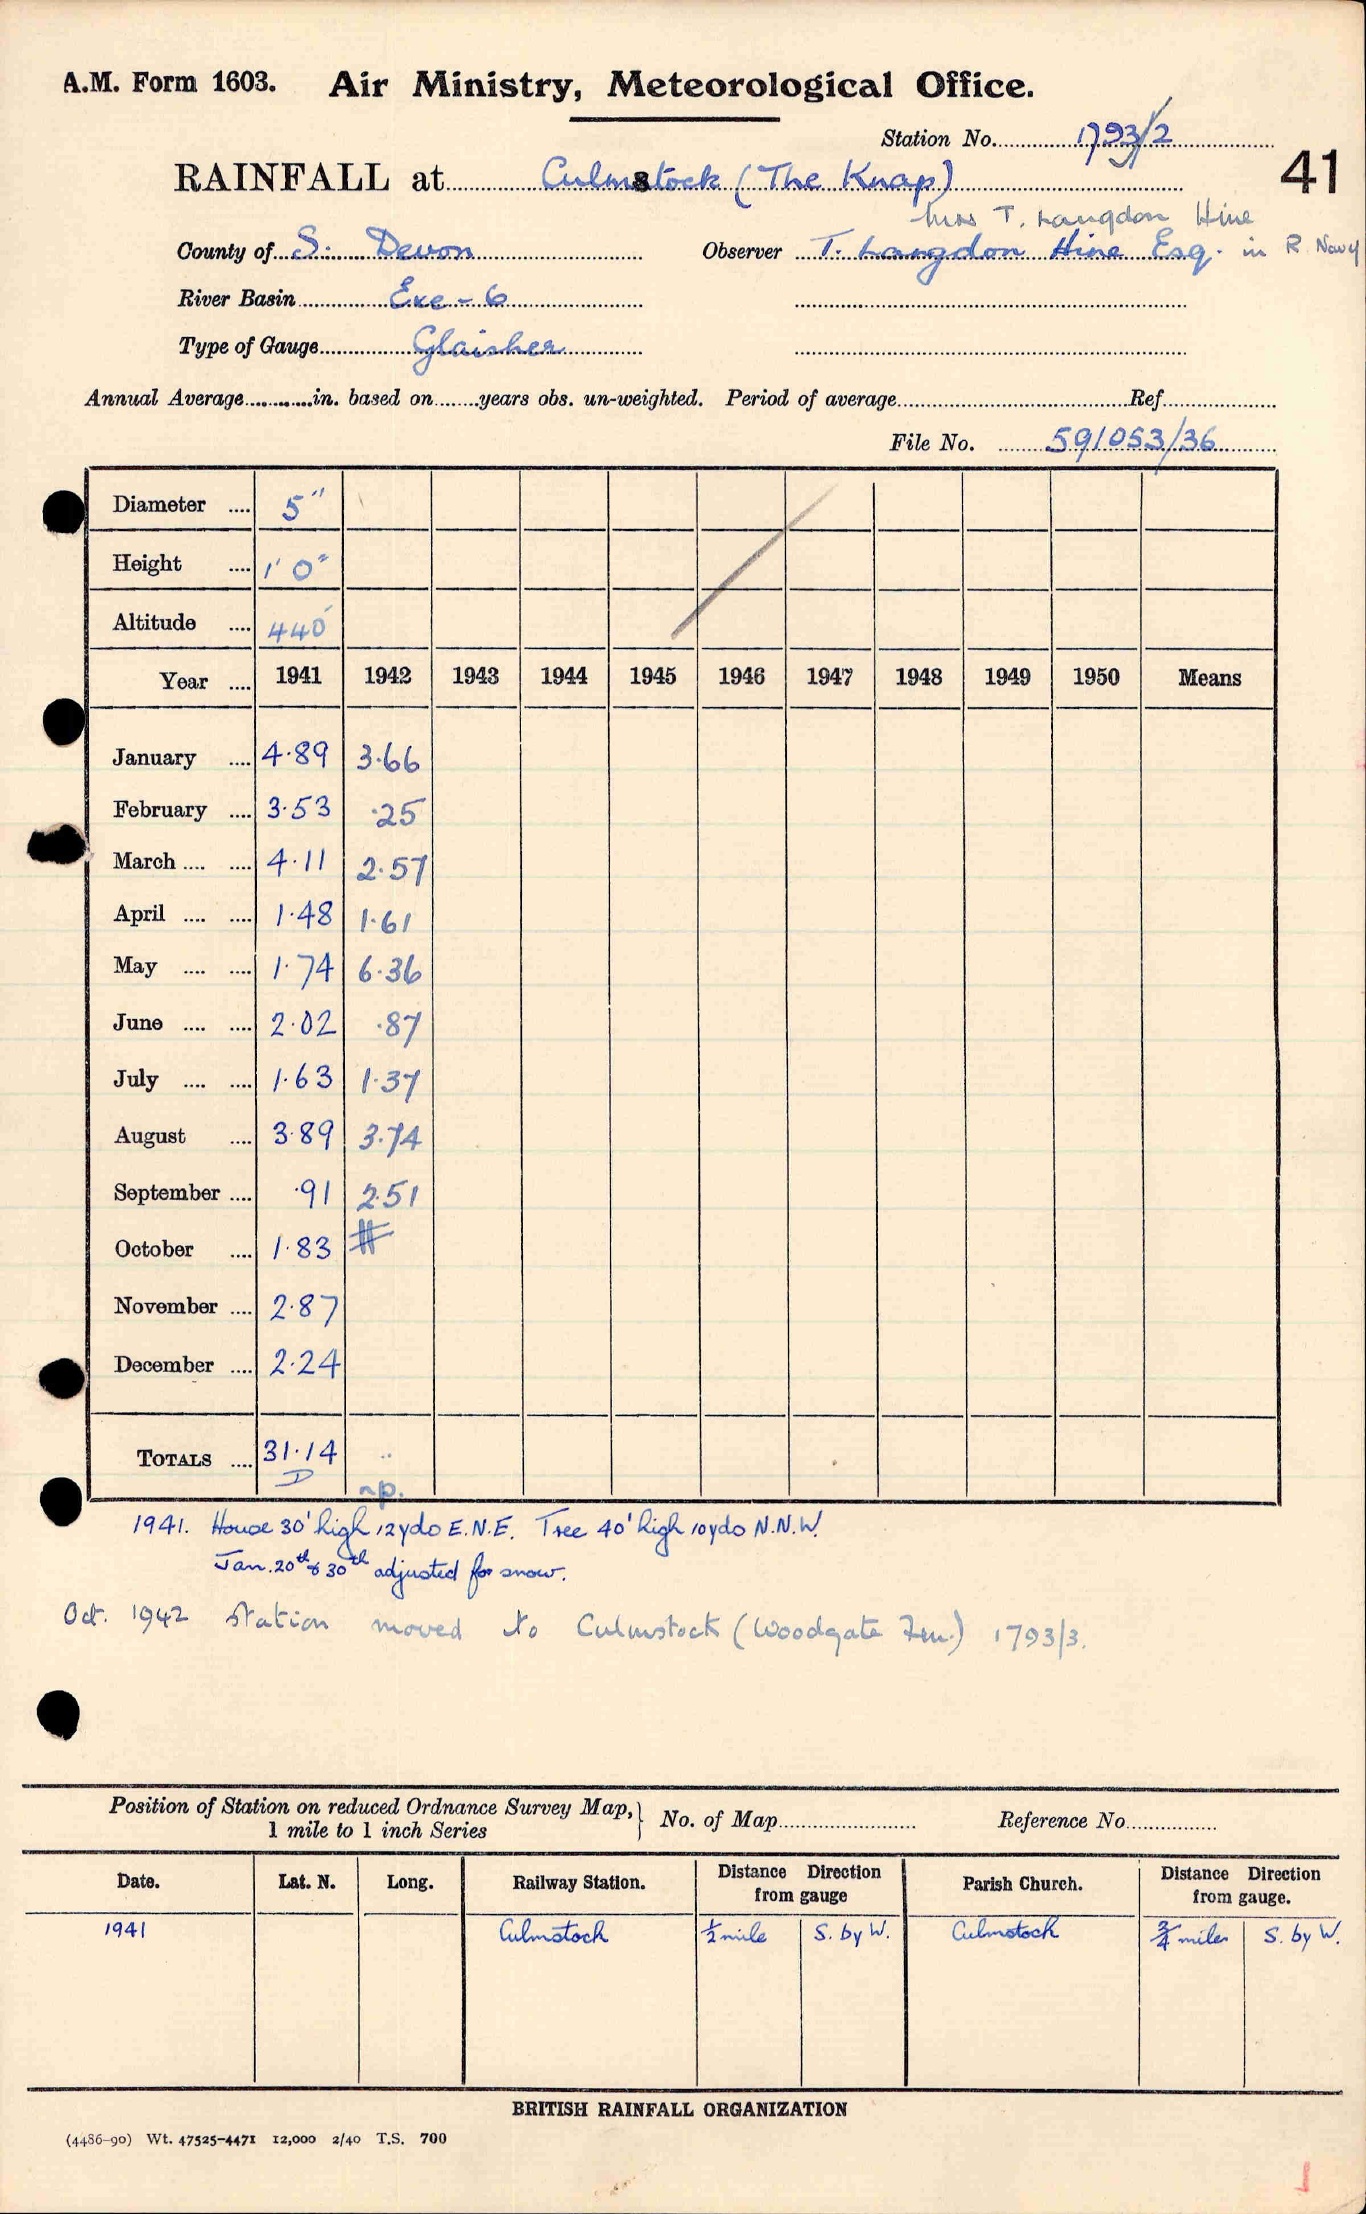 A.M. Form 1603. Air Ministry, Meteorological Office.
Station No. 1793/2
41
RAINFALL at Culmstock (The Knap)
Mrs T. Langdon Hine
County of S. Devon Observer T. Langdon Hine Esq. in R. Navy
River Basin Exe - 6
Type of Gauge Glaisher
Annual Average in. based on years obs. un-weighted. Period of average Ref.
File No. 591053/36
Diameter .... 5"
Height .... 1' 0"
Altitude .... 440'
Year .... 1941 1942 1943 1944 1945 1946 1947 1948 1949 1950 Means
January .... 4·89 3·66
February .... 3·53 ·25
March .... .... 4·11 2·57
April .... .... 1·48 1·61
May .... .... 1·74 6·36
June .... .... 2·02 ·87
July .... .... 1·63 1·37
August .... 3·89 3·74
September .... ·91 2·51
October .... 1·83 #
November .... 2·87
December .... 2·24
TOTALS .... 31·14 ..
D np.
1941. House 30' high 12yds E.N.E. Tree 40' high 10yds N.N.W.
Jan. 20th & 30th adjusted for snow.
Oct. 1942 Station moved to Culmstock (Woodgate Fm.) 1793/3.
Position of Station on reduced Ordnance Survey Map, } No. of Map Reference No.
1 mile to 1 inch Series
Date. Lat. N. Long. Railway Station. Distance Direction from gauge Parish Church. Distance Direction from gauge.
1941 Culmstock ½ mile S. by W. Culmstock ¾ miles S. by W.
BRITISH RAINFALL ORGANIZATION
(4486-90) Wt. 47525-4471 12,000 2/40 T.S. 700